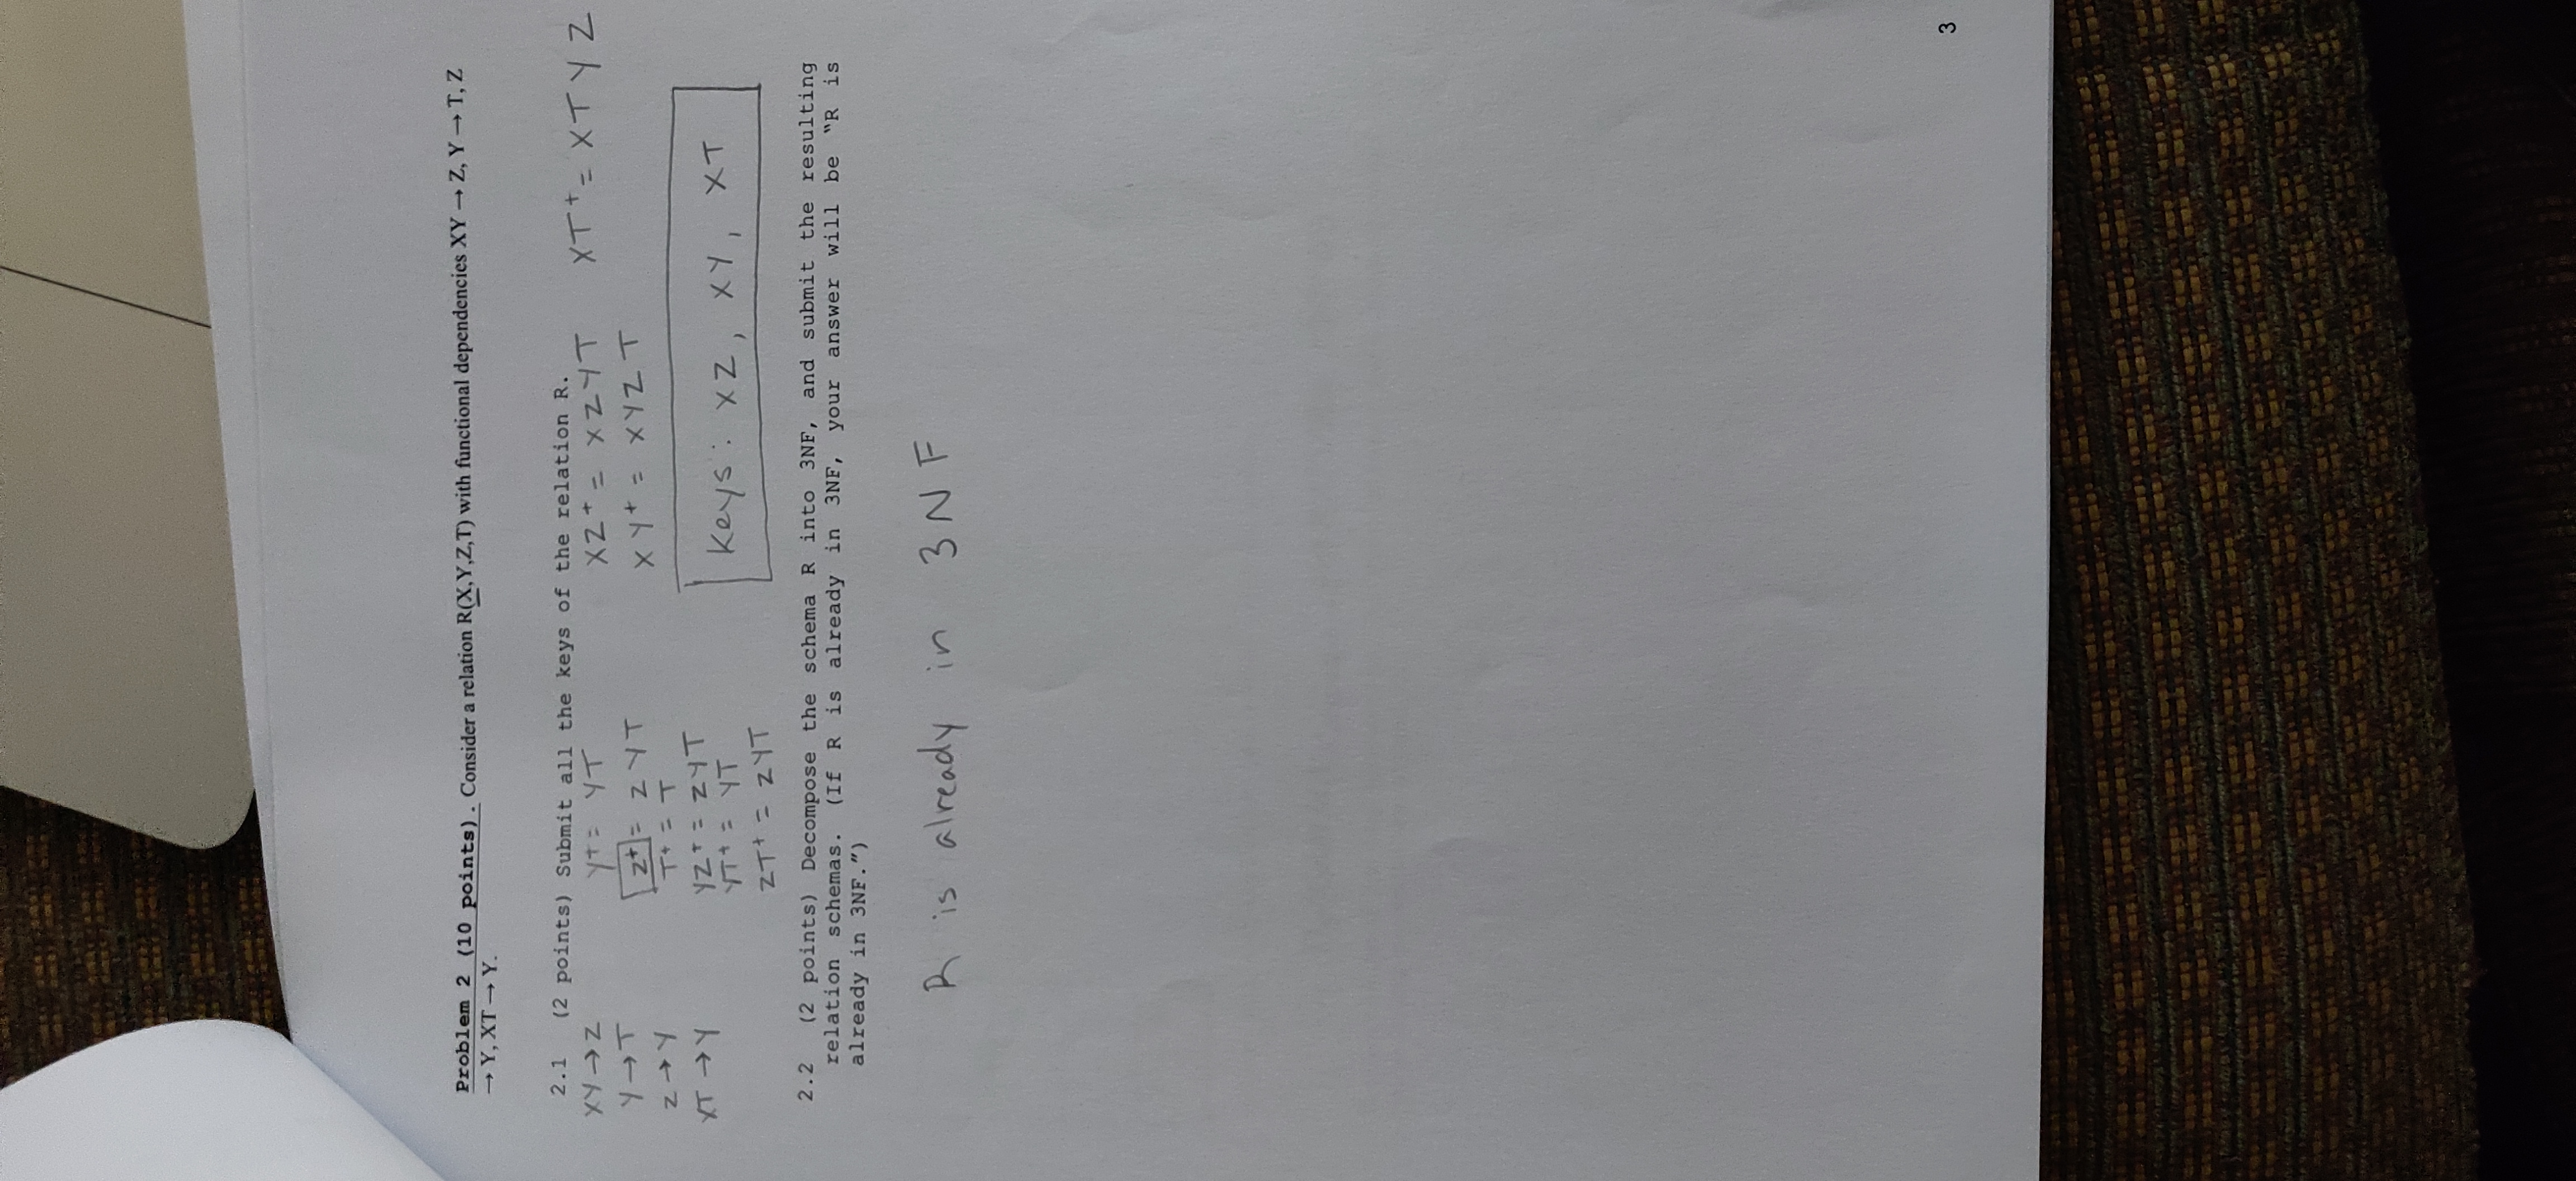 Problem 2 (10 points). Consider a relation R(X,Y,Z,T) with functional dependencies XY → Z, Y → T, Z
→ Y, XT → Y.
2.1 (2 points) Submit all the keys of the relation R.
XY → Z
Y → T
Z → Y
XT → Y
Y+ = YT
Z+ = ZYT
T+ = T
YZ+ = ZYT
YT+ = YT
ZT+ = ZYT
XZ+ = XZYT
XY+ = XYZT
XT+ = XTYZ
Keys: XZ, XY, XT
2.2 (2 points) Decompose the schema R into 3NF, and submit the resulting
relation schemas. (If R is already in 3NF, your answer will be “R is
already in 3NF.”)
R is already in 3NF
3